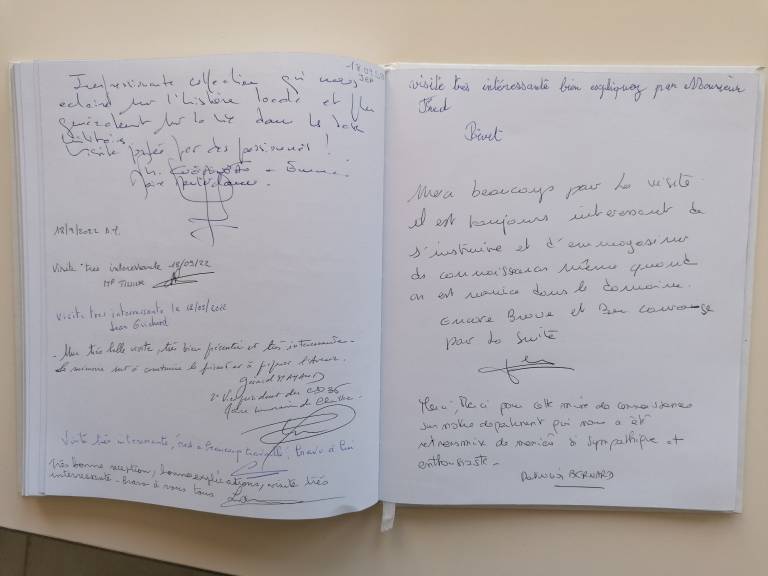 18.09.
JEP
Impressionante collection qui nous
eclaire sur l'histoire locale et plus
généralement sur la vie dans les
militaires
Visite par des passionnés !
18/9/2022
Visite très interessante 18/09/22
Mr
Visite très interressante le 18/09/2022
Jean Guichard
- Une très belle visite, très bien présentée et très interessante -
La mémoire sert à construire le présent et à préparer l'Avenir.
Gérard
Visite très interessante, beaucoup travaillé, bravo à lui
très bonne reception, bonne explications, visite très
interressante - Bravo à vous tous
visite très intéressante bien expliquez par Monsieur
Fred
Merci beaucoup par la visite
il est toujours interessant de
s'instruire et d'emmagasiner
des connaissances même quand
on est novice dans le domaine.
Encore Bravo et Bon courage
par la suite
Merci, Merci pour cette mise de connaissances
sur notre departement qui nous a été
retransmise de manière si sympathique et
enthousiaste -
BERNARD